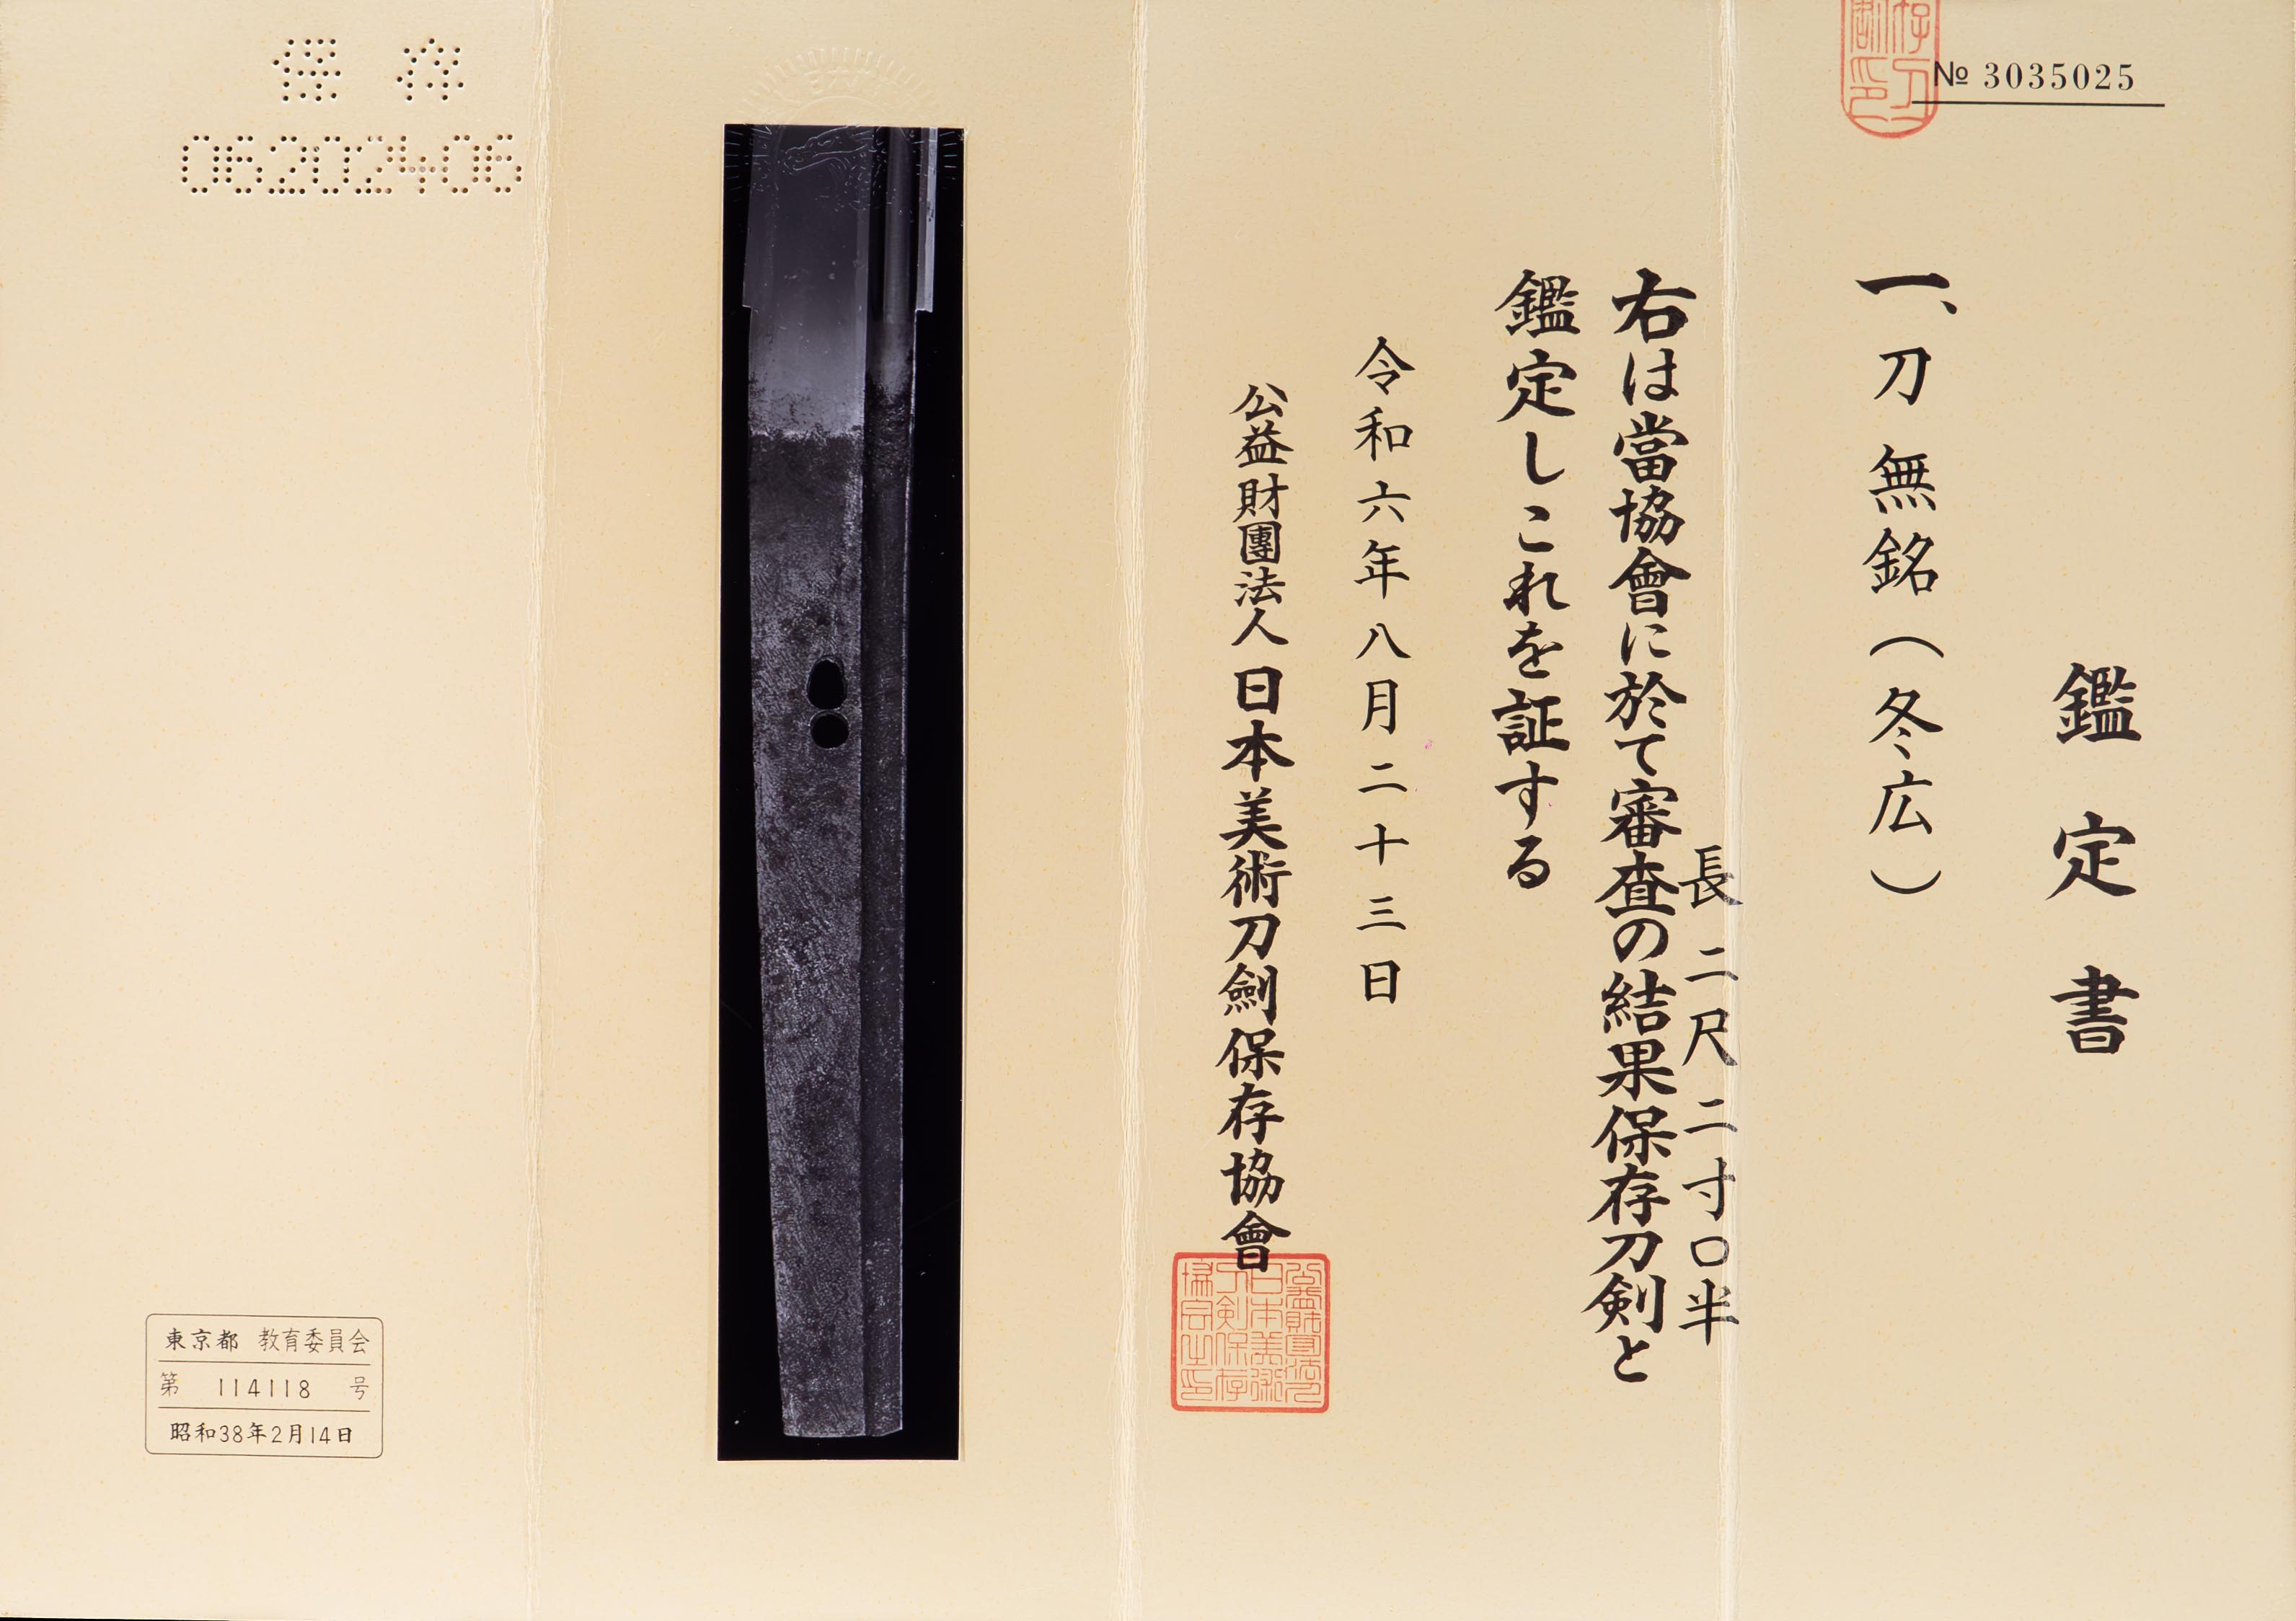 № 3035025
鑑定書
一、刀 無銘（冬広）
長二尺二寸〇半
右は當協會に於て審査の結果保存刀剣と
鑑定しこれを証する
令和六年八月二十三日
公益財團法人 日本美術刀劍保存協會
保存
06202406
東京都 教育委員会
第 114118 号
昭和38年2月14日